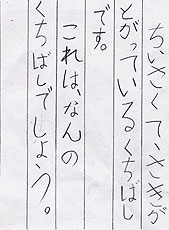 ちいさくて、さきが
とがっているくちばし
です。
これは、なんの
くちばしでしょう。